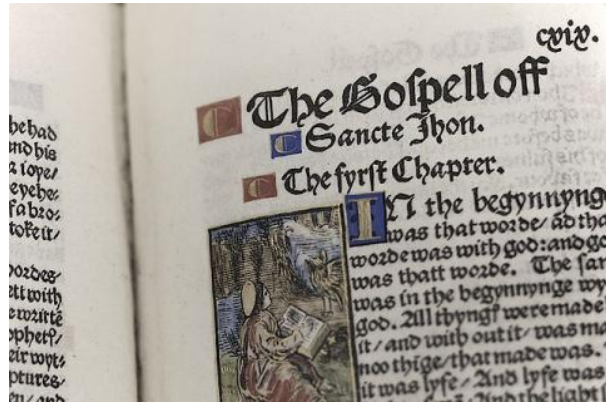 he had
nd his
a ioye/
eyehe:
fabro:
toke it/
wordes/
ett with
e writtē
ophetꝭ/
eir wyt:
ptures/
cxix.
The Gospell off
Sancte Jhon.
The fyrst Chapter.
IN the begynnynge
was that worde/ ād tha
worde was with god: and go
was thatt worde. The sam
was in the begynnynge wy
god. All thyngꝭ were made
it/ and with out it/ was ma
noo thige/ that made was.
it was lyfe/ And lyfe was
And the light